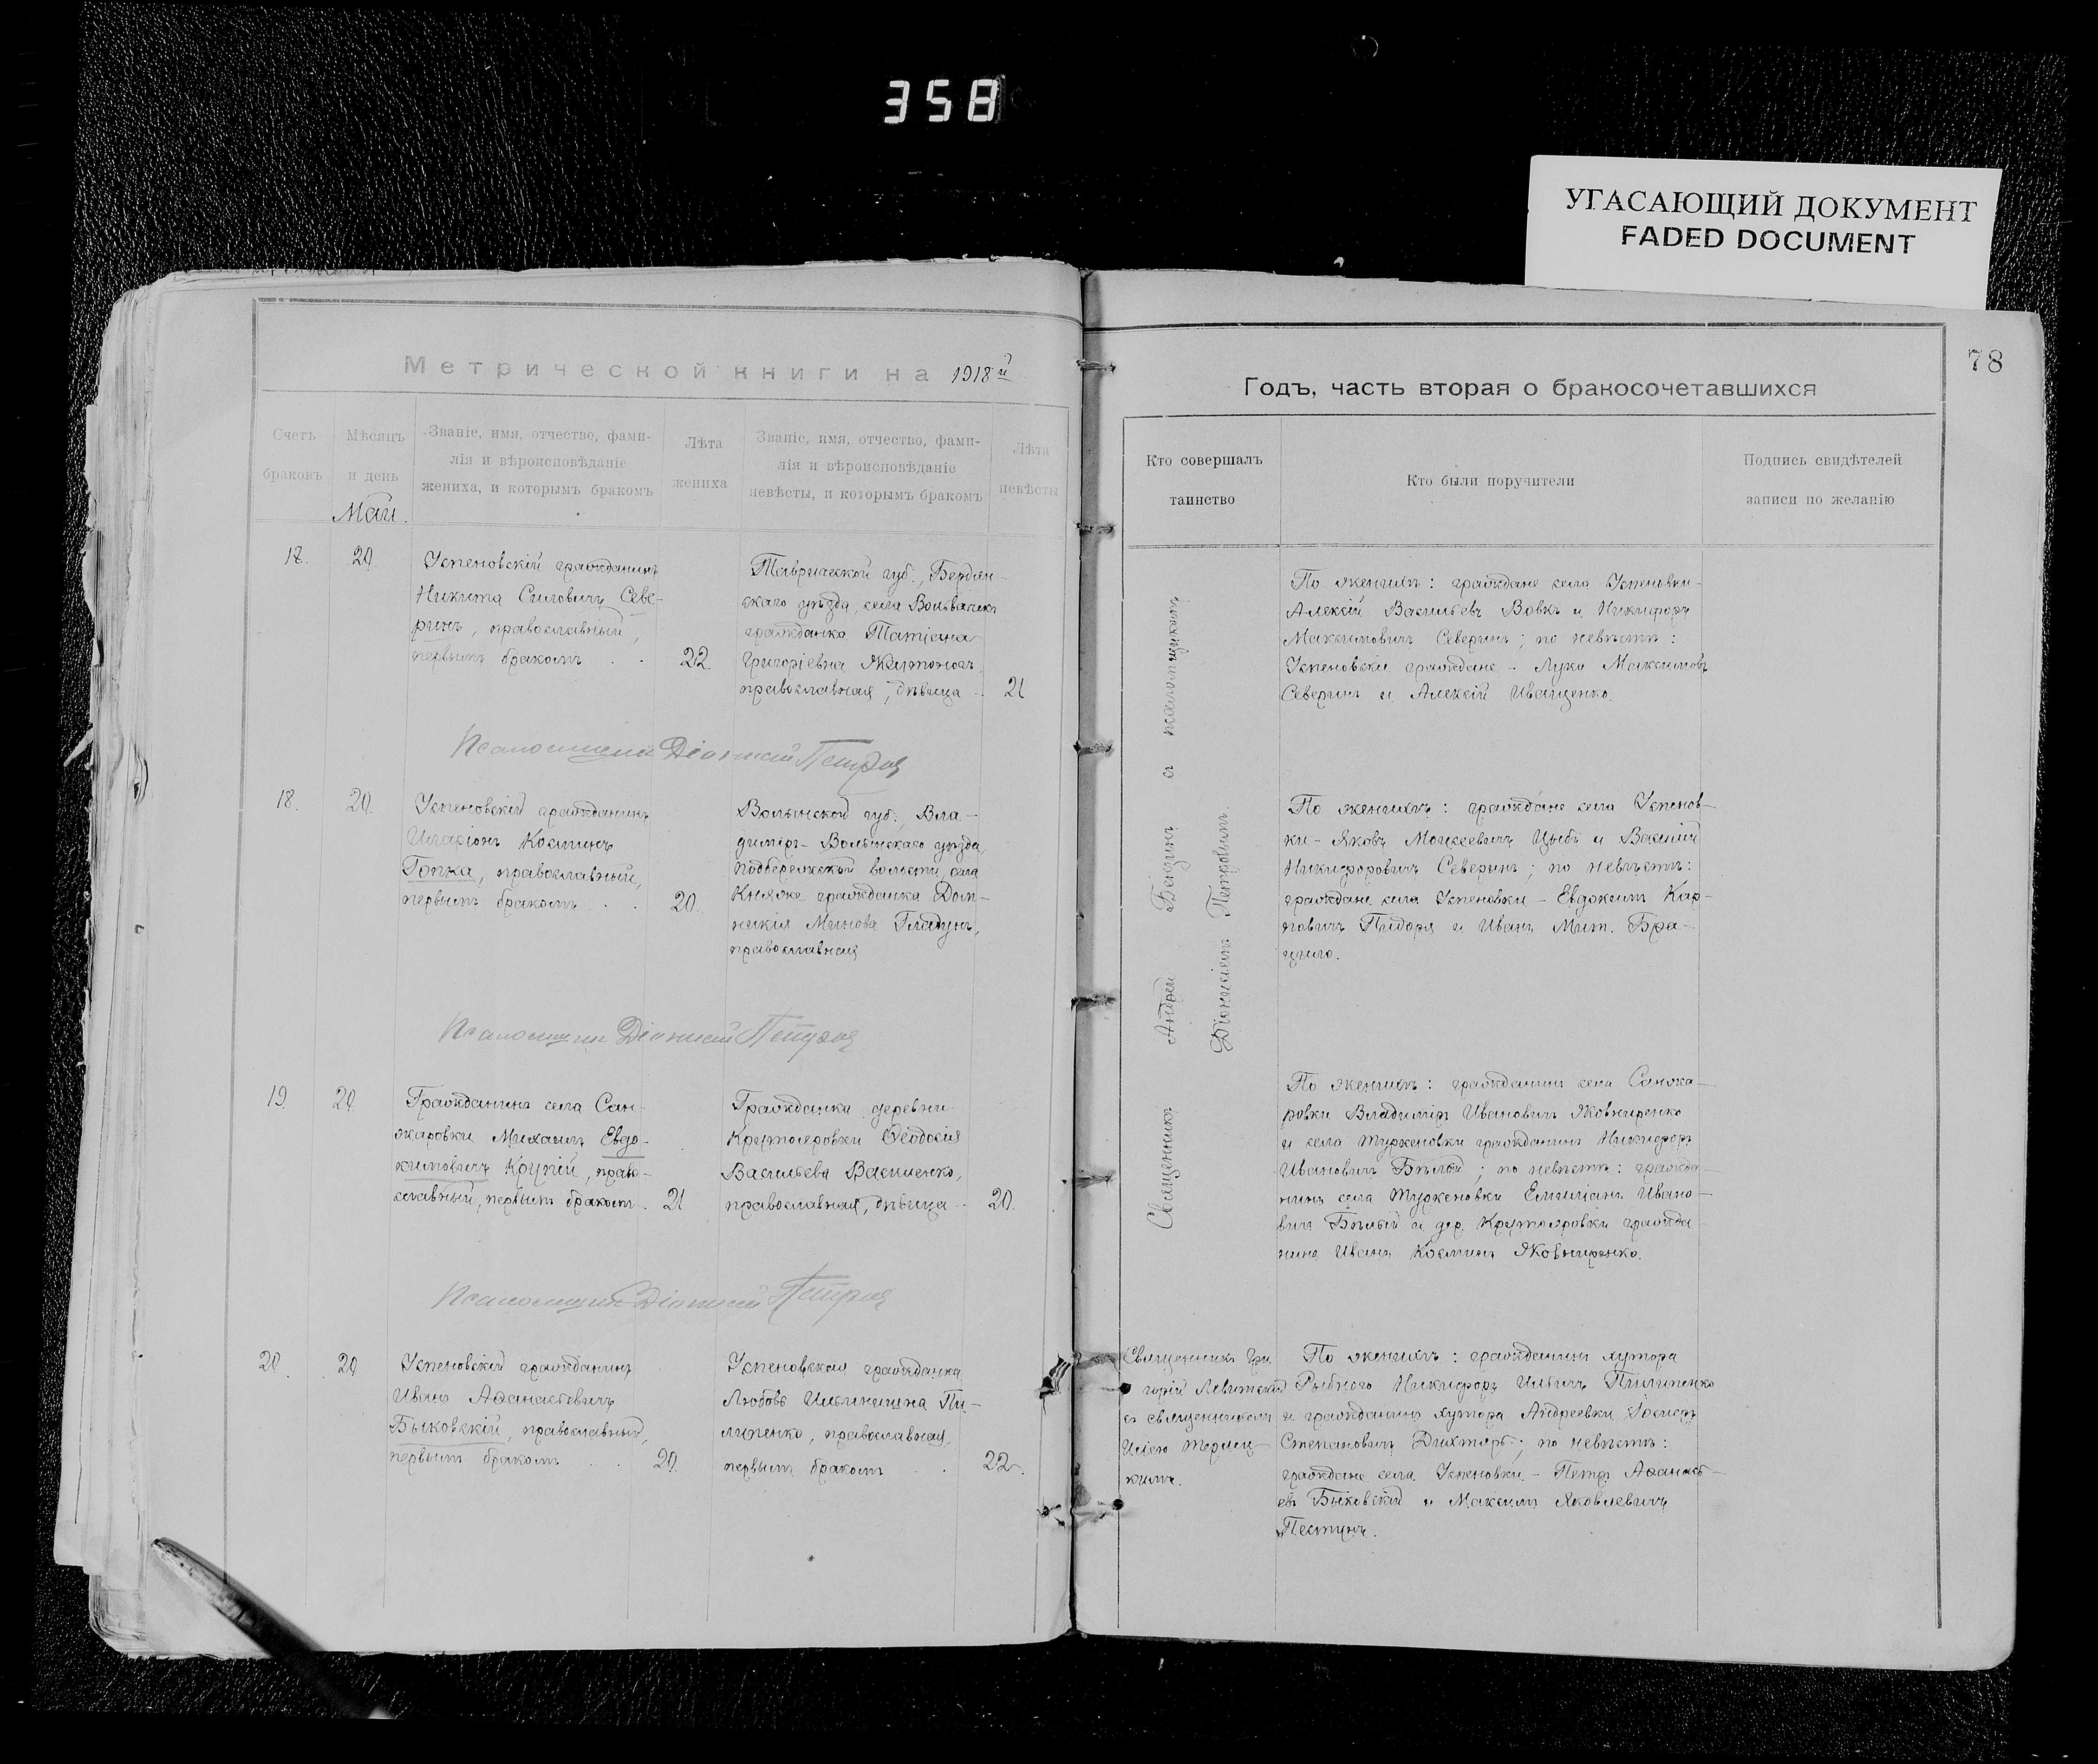 358
УГАСАЮЩИЙ ДОКУМЕНТ
FADED DOCUMENT
78
Метрической книги на 1918 й
Годъ, часть вторая о бракосочетавшихся
Счетъ
браковъ
Мѣсяцъ
и день
Май.
Званіе, имя, отчество, фами-
лія и вѣроисповѣданіе
жениха, и которымъ бракомъ
Лѣта
жениха
Званіе, имя, отчество, фами-
лія и вѣроисповѣданіе
невѣсты, и которымъ бракомъ
Лѣта
невѣсты
Кто совершалъ
таинство
Кто были поручители
Подпись свидѣтелей
записи по желанію
20
Успеновскій гражданинъ
Никита Силовичъ Севе-
ринъ, православный,
первымъ бракомъ . .
22.
Таврической губ., Бердян-
скаго уѣзда, села
гражданка Татіана
Григоріевна
православная, дѣвица
21
Священникъ Андрей съ
Діонисіемъ Петровымъ.
По женихѣ: граждане села Успеновки-
Алексій Васильевъ Вовкъ и Никифоръ
Максимовичъ Северинъ; по невѣстѣ:
Успеновскіе граждане - Лука Максимовъ
Северинъ и Алексій Иващенко.
Псаломщикъ Діонисій Петровъ
18.
20.
Успеновскій гражданинъ
Иларіонъ Косминъ
Гопка, православный,
первымъ бракомъ . .
20.
Волынской губ., Вла-
димір-Волынскаго уѣзда,
Подбережской волости, села
Княже гражданка Дом-
никія Гладунъ,
православная
По женихѣ: граждане села Успенов-
ки - Яковъ Моисеевичъ Цыбъ и Василій
Никифоровичъ Северинъ; по невѣстѣ:
граждане села Успеновки - Евдокимъ Кар-
повичъ и Иванъ Мит. Бра-
Псаломщикъ Діонисій Петровъ
19.
20
Гражданинъ села Сан-
жаровки Михаилъ Евдо-
кимовичъ Крупій, право-
славный, первымъ бракомъ.
21
Гражданка деревни
Крутояровки Ѳеодосія
Васильева Василенко,
православная, дѣвица .
20.
По женихѣ: гражданинъ села Санжа-
ровки Владиміръ Ивановичъ Яковниренко
и села Туркеновки гражданинъ Никифоръ
Ивановичъ Бѣлый; по невѣстѣ: гражда-
нинъ села Туркеновки Емиліанъ Ивано-
вичъ Бѣлый и дер. Крутояровки гражда-
нинъ Иванъ Косминъ Яковниренко.
Псаломщикъ Діонисій Петровъ
20.
20
Успеновскій гражданинъ
Иванъ Аѳанасьевичъ
Быковскій, православный,
первымъ бракомъ . .
20.
Успеновская гражданка
Любовь Ильинишна Пи-
липенко, православная,
первымъ бракомъ .
22.
Священникъ Гри-
горій Левитскій
съ священникомъ
Иліею
По женихѣ: гражданинъ хутора
Рыбного Никифоръ Ильичъ Пилипенко
и гражданинъ хутора Андреевки Іосифъ
Степановичъ Дихтярь; по невѣстѣ:
граждане села Успеновки - Петръ Аѳанась-
евъ Быковскій и Максимъ Яковлевичъ
Пестунъ.